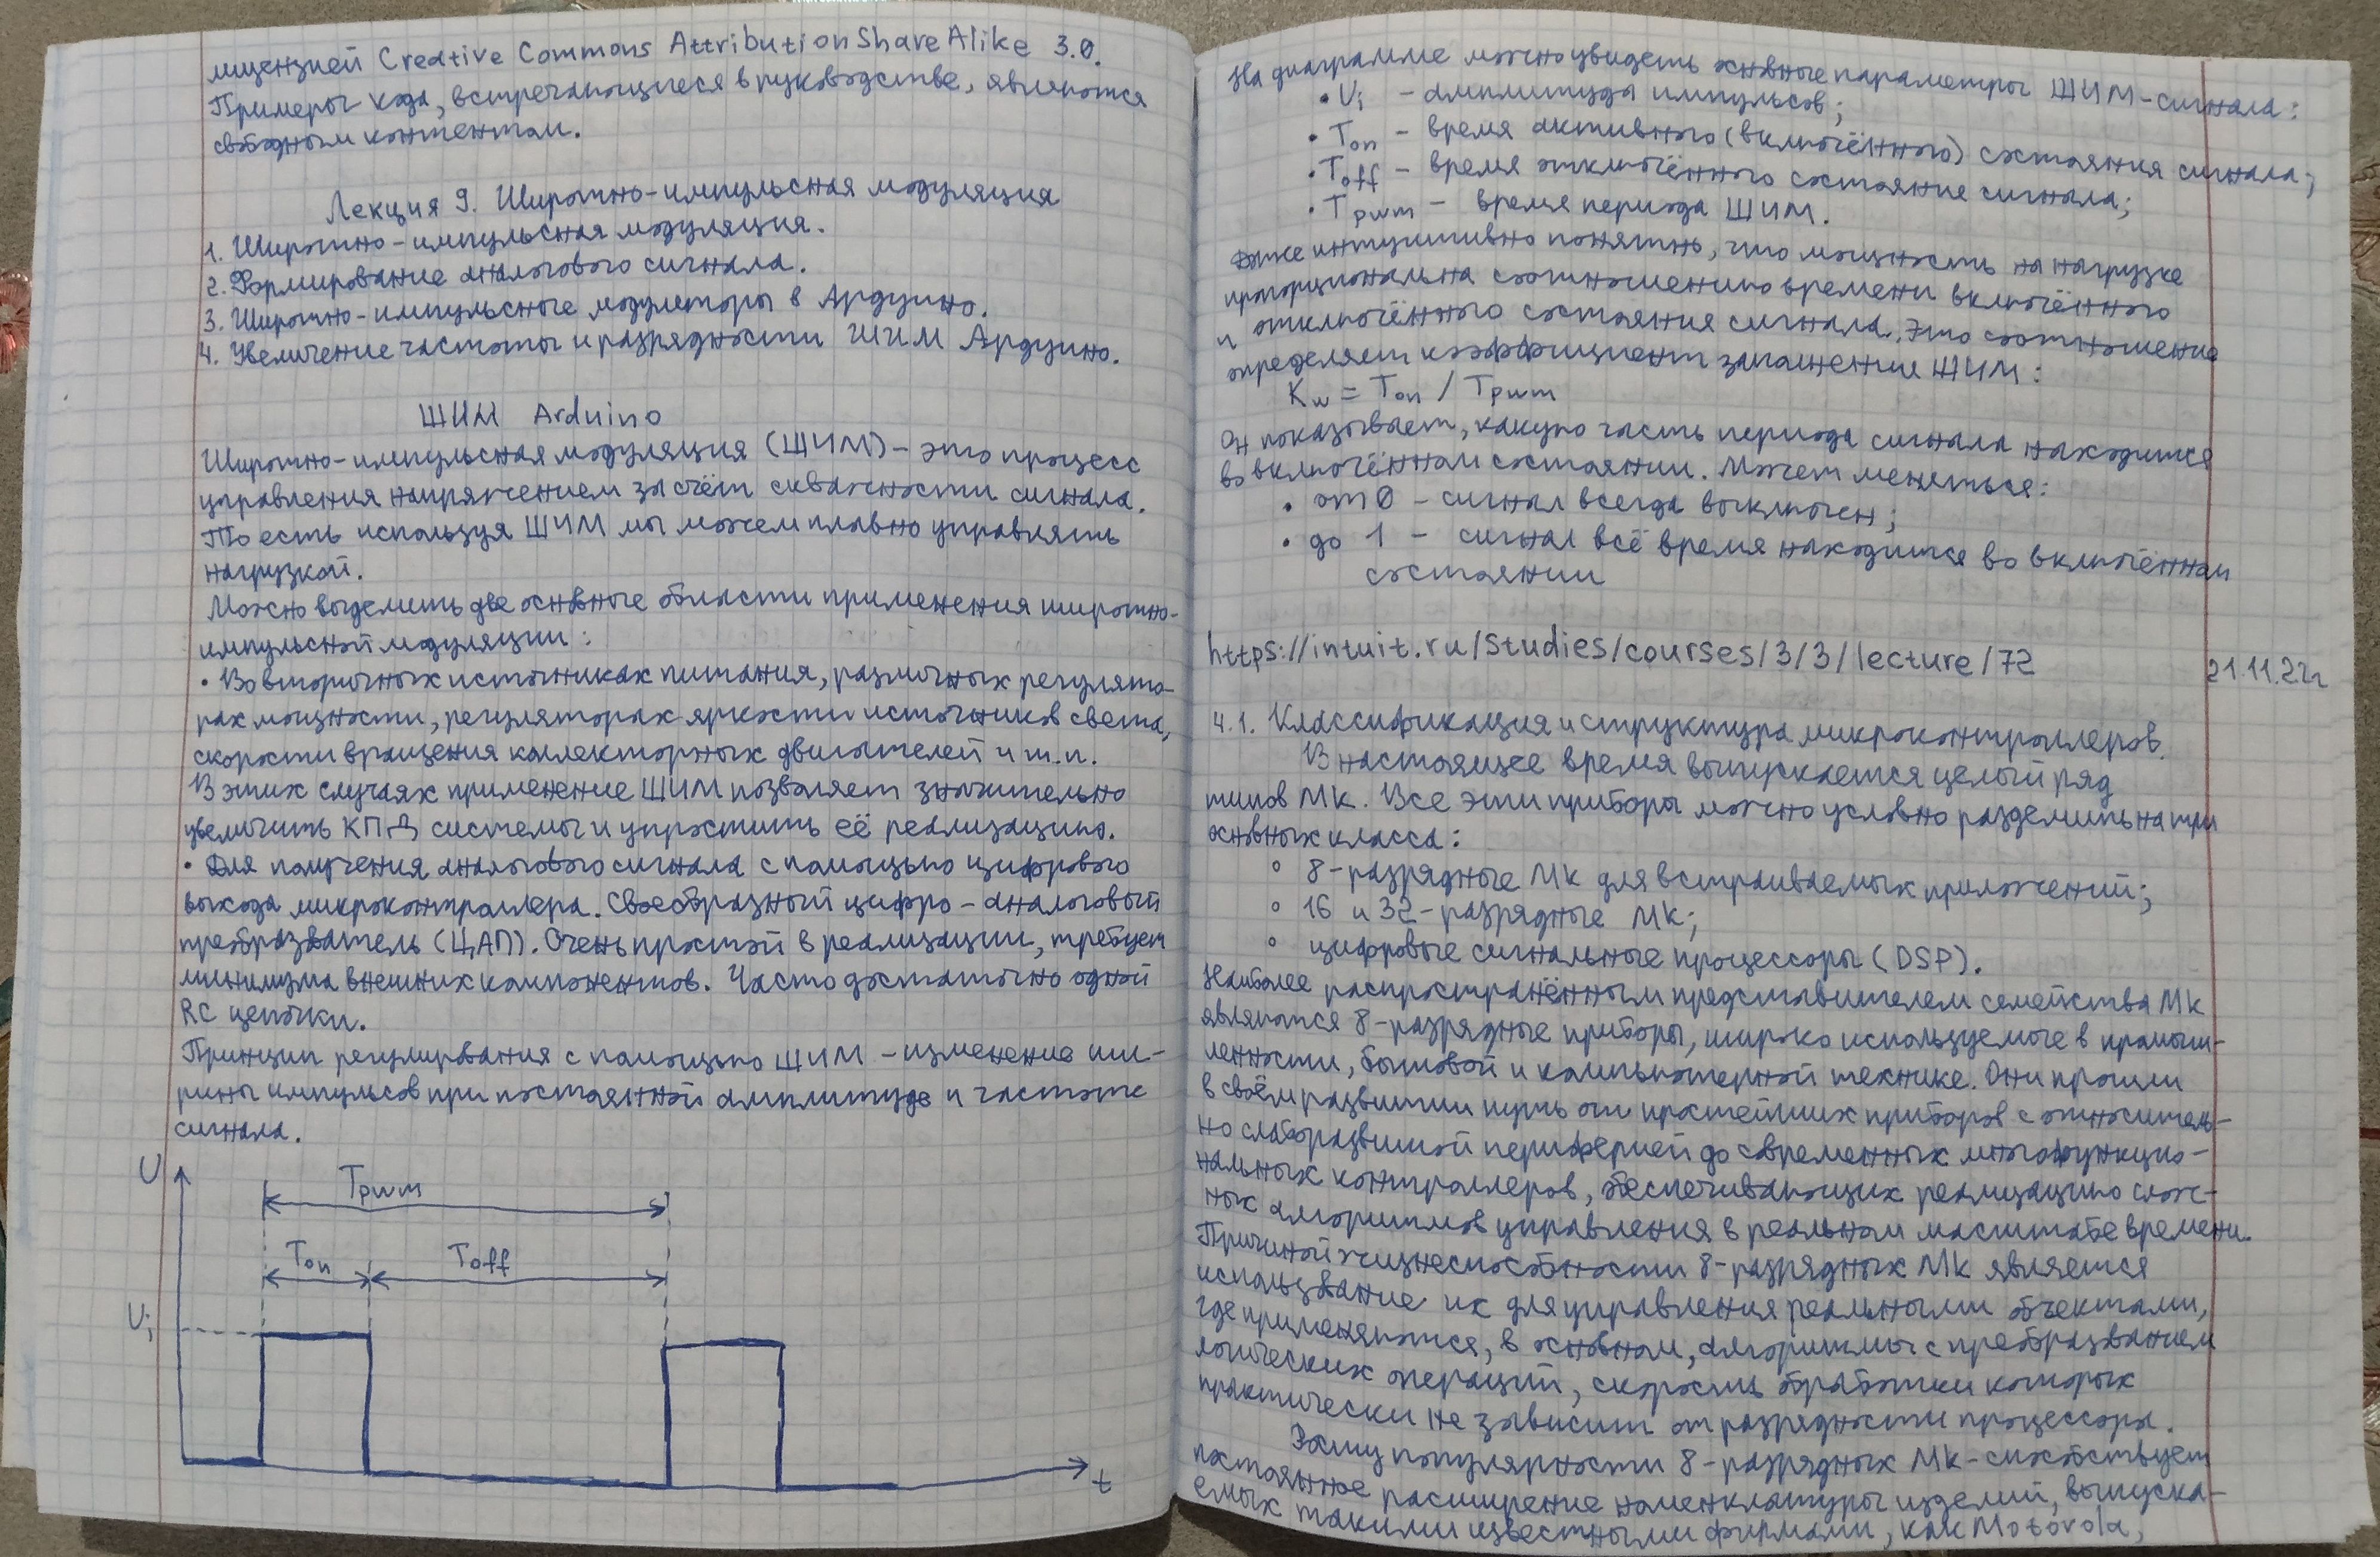 лицензией Creative Commons Attribution ShareAlike 3.0.
Примеры кода, встречающиеся в руководстве, являются
свободным контентом.
Лекция 9. Широтно-импульсная модуляция
1. Широтно-импульсная модуляция.
2. Формирование аналогового сигнала.
3. Широтно-импульсные модуляторы в Ардуино.
4. Увеличение частоты и разрядности ШИМ Ардуино.
ШИМ Arduino
Широтно-импульсная модуляция (ШИМ) - это процесс
управления напряжением за счёт скважности сигнала.
То есть используя ШИМ мы можем плавно управлять
нагрузкой.
Можно выделить две основные области применения широтно-
импульсной модуляции:
• Во вторичных источниках питания, различных регулято-
рах мощности, регуляторах яркости источников света,
скорости вращения коллекторных двигателей и т.п.
В этих случаях применение ШИМ позволяет значительно
увеличить КПД системы и упростить её реализацию.
• Для получения аналогового сигнала с помощью цифрового
выхода микроконтроллера. Своеобразный цифро-аналоговый
преобразователь (ЦАП). Очень простой в реализации, требует
минимума внешних компонентов. Часто достаточно одной
RC цепочки.
Принцип регулирования с помощью ШИМ - изменение ши-
рины импульсов при постоянной амплитуде и частоте
сигнала.
U
Tpwm
Ton
Toff
Ui
t
На диаграмме можно увидеть основные параметры ШИМ-сигнала:
• Ui - амплитуда импульсов;
• Ton - время активного (включённого) состояния сигнала;
• Toff - время отключённого состояние сигнала;
• Tpwm - время периода ШИМ.
Даже интуитивно понятно, что мощность на нагрузке
пропорциональна соотношению времени включённого
и отключённого состояния сигнала. Это соотношение
определяет коэффициент заполнение ШИМ:
Kw = Ton / Tpwm
Он показывает, какую часть периода сигнала находится
во включённом состоянии. Может меняться:
• от 0 - сигнал всегда выключен;
• до 1 - сигнал всё время находится во включённом
состоянии
https://intuit.ru/studies/courses/3/3/lecture/72
21.11.22г
4.1. Классификация и структура микроконтроллеров.
В настоящее время выпускается целый ряд
типов МК. Все эти приборы можно условно разделить на три
основных класса:
◦ 8-разрядные МК для встраиваемых приложений;
◦ 16 и 32-разрядные МК;
◦ цифровые сигнальные процессоры (DSP).
Наиболее распространённым представителем семейства МК
являются 8-разрядные приборы, широко используемые в промыш-
ленности, бытовой и компьютерной технике. Они прошли
в своём развитии путь от простейших приборов с относитель-
но слаборазвитой периферией до современных многофункцио-
нальных контроллеров, обеспечивающих реализацию слож-
ных алгоритмов управления в реальном масштабе времени.
Причиной жизнеспособности 8-разрядных МК является
использование их для управления реальными объектами,
где применяются, в основном, алгоритмы с преобразованием
логических операций, скорость обработки которых
практически не зависит от разрядности процессора.
Росту популярности 8-разрядных МК-способствует
постоянное расширение номенклатуры изделий, выпуска-
емых такими известными фирмами, как Motorola,